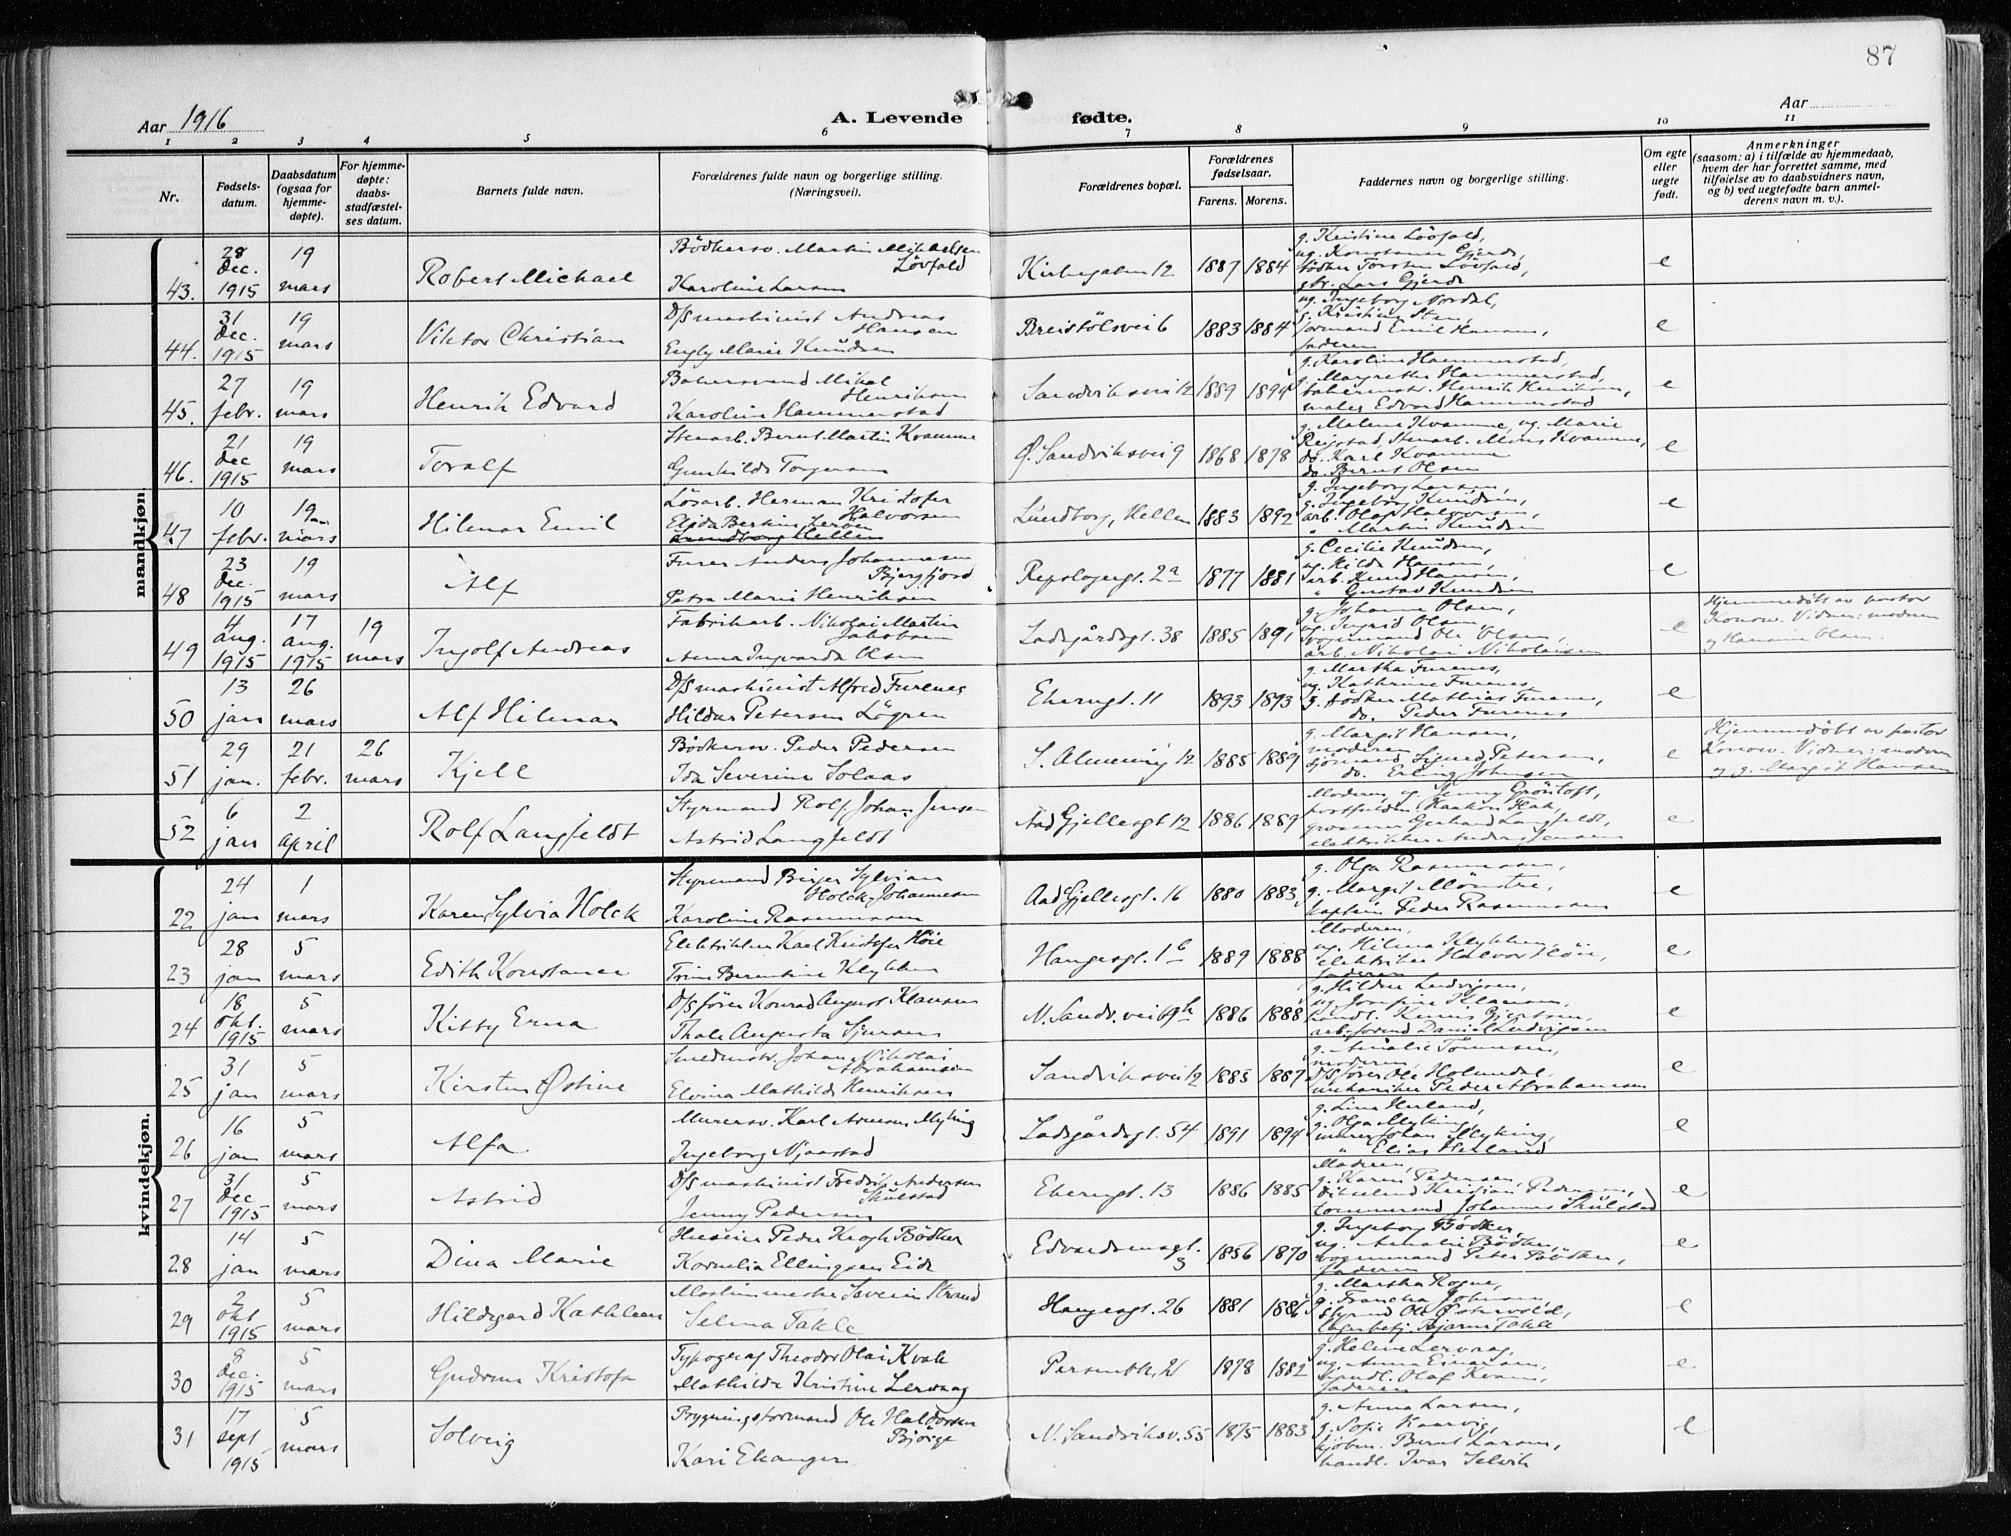 87
Aar 1916
A. Levende fødte.
Aar
1 2 3 4 5 6 7 8 9 10 11
Nr.
Fødsels-datum.
Daabsdatum (ogsaa for hjemme-døpte).
For hjemme-døpte: daabs-stadfæstel-ses datum.
Barnets fulde navn.
Forældrenes fulde navn og borgerlige stilling. (Næringsvei).
Forældrenes bopæl.
Forældrenes fødselsaar.
Farens. Morens.
Faddernes navn og borgerlige stilling.
Om egte eller uegte født.
Anmerkninger
(saasom: a) i tilfælde av hjemmedaab, hvem der har forrettet samme, med tilføielse av to daabsvidners navn, og b) ved uegtefødte barn anmel-derens navn m. v.).
mandkjøn.
43. 28 Dec. 1915 19 mars Robert Michael Bödkersv. Martin Mikaelsen Lövfald Karoline Larsen Kirkegaten 12 1887 1884 g. Kristine Lövfald, ug. Konstanse Gjerde, bödker Torsten Lövfald, Lars Gjerde e
44. 31 Dec. 1915 19 mars Viktor Christian D/S maskinist Andreas Hansen Engly Marie Knudsen Breistölsvei 6 1883 1884 ug. Ingeborg Nordal, g. Kristine Sten, formand Emil Hansen, faderen e
45. 27 febr. 19 mars Henrik Edvard Bakersvend Mikal Henriksen Karoline Hammerstad Sandviksvei 12 1889 1894 g. Karoline Hammerstad, g. Margrethe Hammerstad, bakermstr. Henrik Henriksen, maler Edvard Hammerstad e
46. 21 Dec 1915 19 mars Toralf Stenarb. Bernt Martin Kvamme Gunhilde Torgersen Ø. Sandviksvei 9 1868 1878 g. Malene Kvamme, ug. Marie Reigstad, Stenarb. Mons Kvamme, do. Karl Kvamme do. Bernt Olsen e
47 10 febr. 19 mars Hilmar Emil Lösarb. Herman Kristofer Halvorsen Elida Bertine Larsen Lundborg, Hellen 1883 1892 g. Ingeborg Larsen, g. Ingeborg Knudsen, arb. Olaf Halvorsen, " Martin Knudsen e
48 23 Dec. 1915 19 mars Alf Furer Anders Johannesen Bjergfjord Petra Marie Henriksen Repslagergt. 2a 1877 1881 g. Cecilie Knudsen, ug. Hilda Hansen, arb. Knud Hansen, " Gustav Knudsen e
49 4 aug. 1915 17 aug. 1915 19 mars Ingolf Andreas Fabrikarb. Nikolai Martin Jakobsen Anna Ingvarda Olsen Ladsgårdsgt. 38 1885 1891 g. Johanne Olsen, ug. Ingrid Olsen, vognmand Ole Olsen, arb. Nikolai Nikolaisen e Hjemmedöbt av pastor Konow. Vidner: moderen og Hansine Olsen.
50 13 jan 26 mars Alf Hilmar D/S maskinist Alfred Furenes Hildur Petersen Lögren Ekerengt. 11 1893 1893 g. Martha Furenes, ug. Kathrine Furenes, g. bödker Mathias Furenes, do. Peder Furenes e
51 29 jan. 21 febr. 26 mars Kjell Bödkersv. Peder Pedersen Ida Severine Solaas S. Almening 12 1885 1889 g. Margit Hansen, moderen, sjömand Sigurd Petersen, do. Erling Johnsen e Hjemmedöbt av pastor Konow. Vidner: moderen og g. Margit Hansen
52 6 jan 2 april Rolf Langfeldt Styrmand Rolf Johan Jensen Astrid Langfeldt Aad Gjellesgt 12 1886 1889 Moderen, g. Jenny Gröntoft, Haakon Hak, grosserer Gerhard Langfeldt, elektriker Anders Jensen e
kvindekjøn.
22 24 jan 1 mars Karen Sylvia Holck Styrmand Birger Sylvian Holck-Johannesen Karoline Rasmussen Aad Gjellesgt. 16 1880 1883 g. Olga Rasmussen, g. Margit Mönstre, kaptein Peder Rasmussen e
23 28 jan 5 mars Edith Konstance Elektriker Karl Kristofer Höie Trine Berentine Klykken Haugesgt. 1b 1889 1888 Moderen, ug. Hilma Klykken, elektriker Halvor Höie, faderen e
24 18 okt. 1915 5 mars Kitty Erna D/S förer Konrad August Klausen Thale Augusta Sjursen N. Sandv. vei 69b 1886 1888 g. Hildur Ludvigsen, ug. Josefine Klausen, handl. Gjertsen, arb. formd Daniel Ludvigsen e
25 31 jan 5 mars Kirsten Østine Smedmstr. Johan Nikolai Abrahamsen Elvina Mathilde Henriksen Sandviksvei 12 1885 1887 g. Amalie Tönnesen, moderen, D/S förer Ole Holmedal, mekaniker Peder Abrahamsen e
26 16 jan 5 mars Alfa Murersv. Karl Myking Ingeborg Njaastad Ladsgårdsgt. 54 1891 1894 g. Lina Herland, g. Olga Myking, murer Johan Myking, " Elias Herland e
27 31 Dec 1915 5 mars Astrid D/S maskinist Fredrik Andersen Skulstad Jenny Pedersen Ekerengt. 13 1886 1885 Moderen, g. Karen Pedersen, Kristian Pedersen, tömmermd Johannes Skulstad e
28 14 jan 5 mars Dina Marie Huseier Peder Krogh Bödker Kornelia Ellingsen Eide Edvardsensgt. 3 1856 1870 g. Ingeborg Bödker, ug. Amalie Bödker, vognmand Peter Bödker, faderen e
29 2 okt 1915 5 mars Hildegard Kathleen Maskinmester Severin Strand Selma Takle Haugesgt. 26 1881 1886 g. Martha Rogne, g. Francka Johnsen, styrmd Ole Østervold, lagerbetj. Bjarne Takle e
30 8 Dec. 1915 5 mars Gudrun Kristofa Typograf Theodor Olai Kvale Mathilde Kristine Lervaag Persenbk. 21 1878 1882 g. Helene Lervaag, ug. Anna Einarsen, handl. Olaf Kvam, faderen e
31 17 sept 1915 5 mars Solveig Brygningsformand Ole Haldorsen Björge Kari Ekanger N. Sandviksv. 55 1875 1883 g. Anna Larsen, g. Sofie Kaarvig, kjöbm. Bernt Larsen, handl. Ivar Selvik e